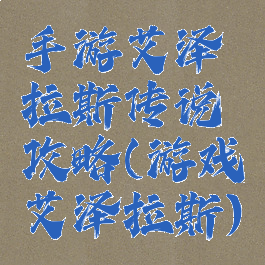 手游艾泽
拉斯传说
攻略(游戏
艾泽拉斯)